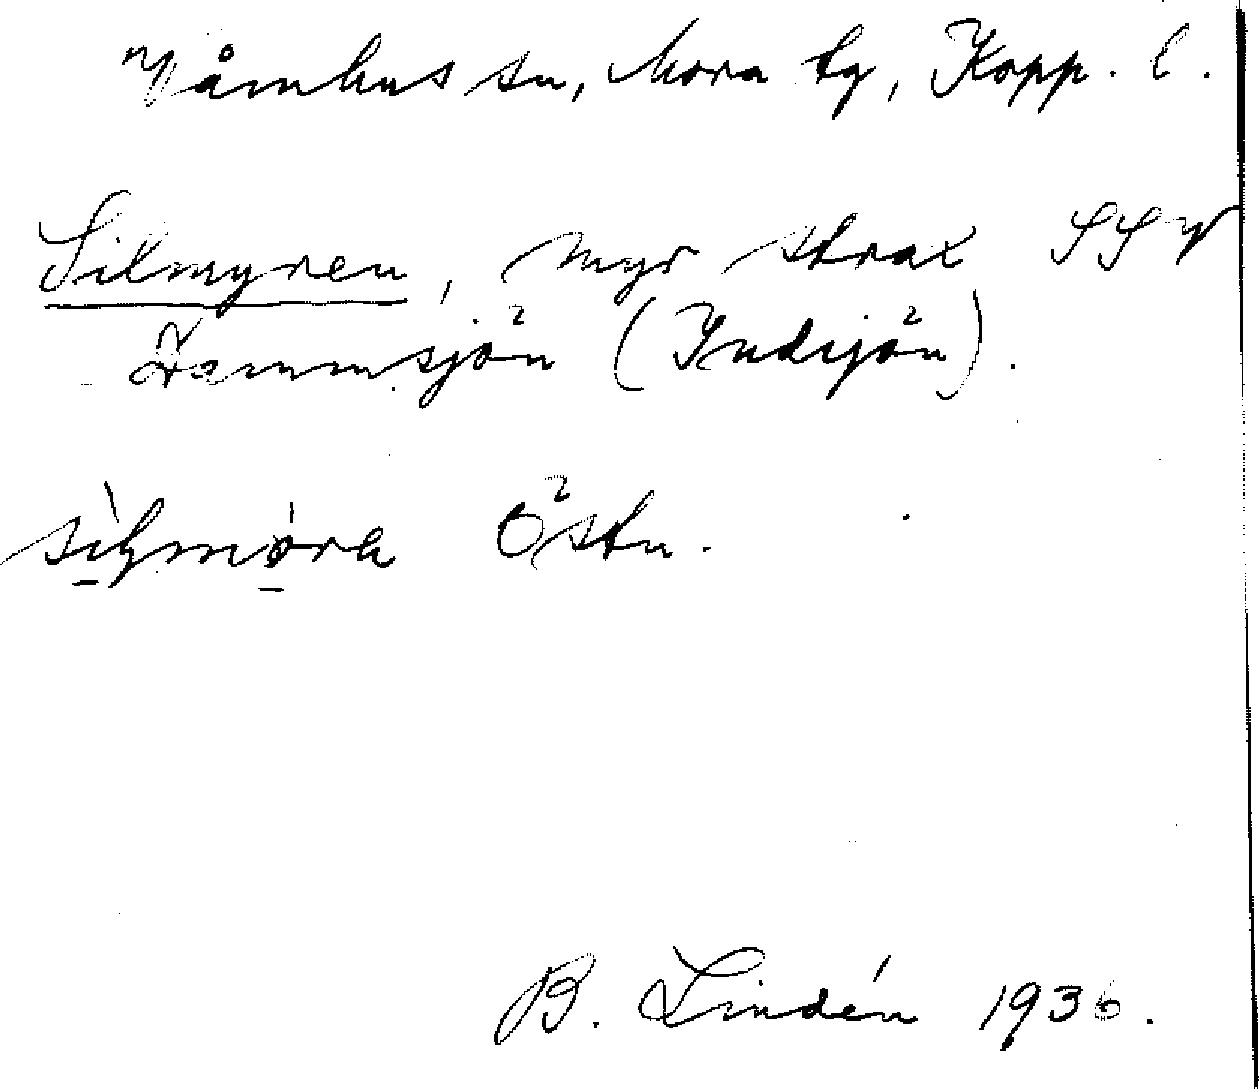 Våmhus sn, Mora tg, Kopp. l.
Silmyren, myr strax SSV
Dammsjön (Indsjön).
Östn.
B. Lindén 1936.